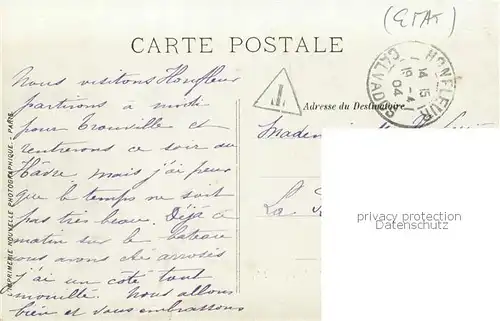 (ETAT)
CARTE POSTALE
HONFLEUR
14 15
19 -4
04
CALVADOS
Nous visitons Honfleur
partirons à midi
pour Trouville et
rentrerons ce soir au
Hâvre, mais j'ai peur
que le temps ne soit
pas très beau. Déjà ce
matin sur le bateau
nous avons été arrosés
j'ai un côté tout
mouillé. Nous allons
bien et vous embrassons
Adresse du Destinataire
Mademoi
La
L'IMPRIMERIE NOUVELLE PHOTOGRAPHIQUE - PARIS
privacy protection
Datenschutz